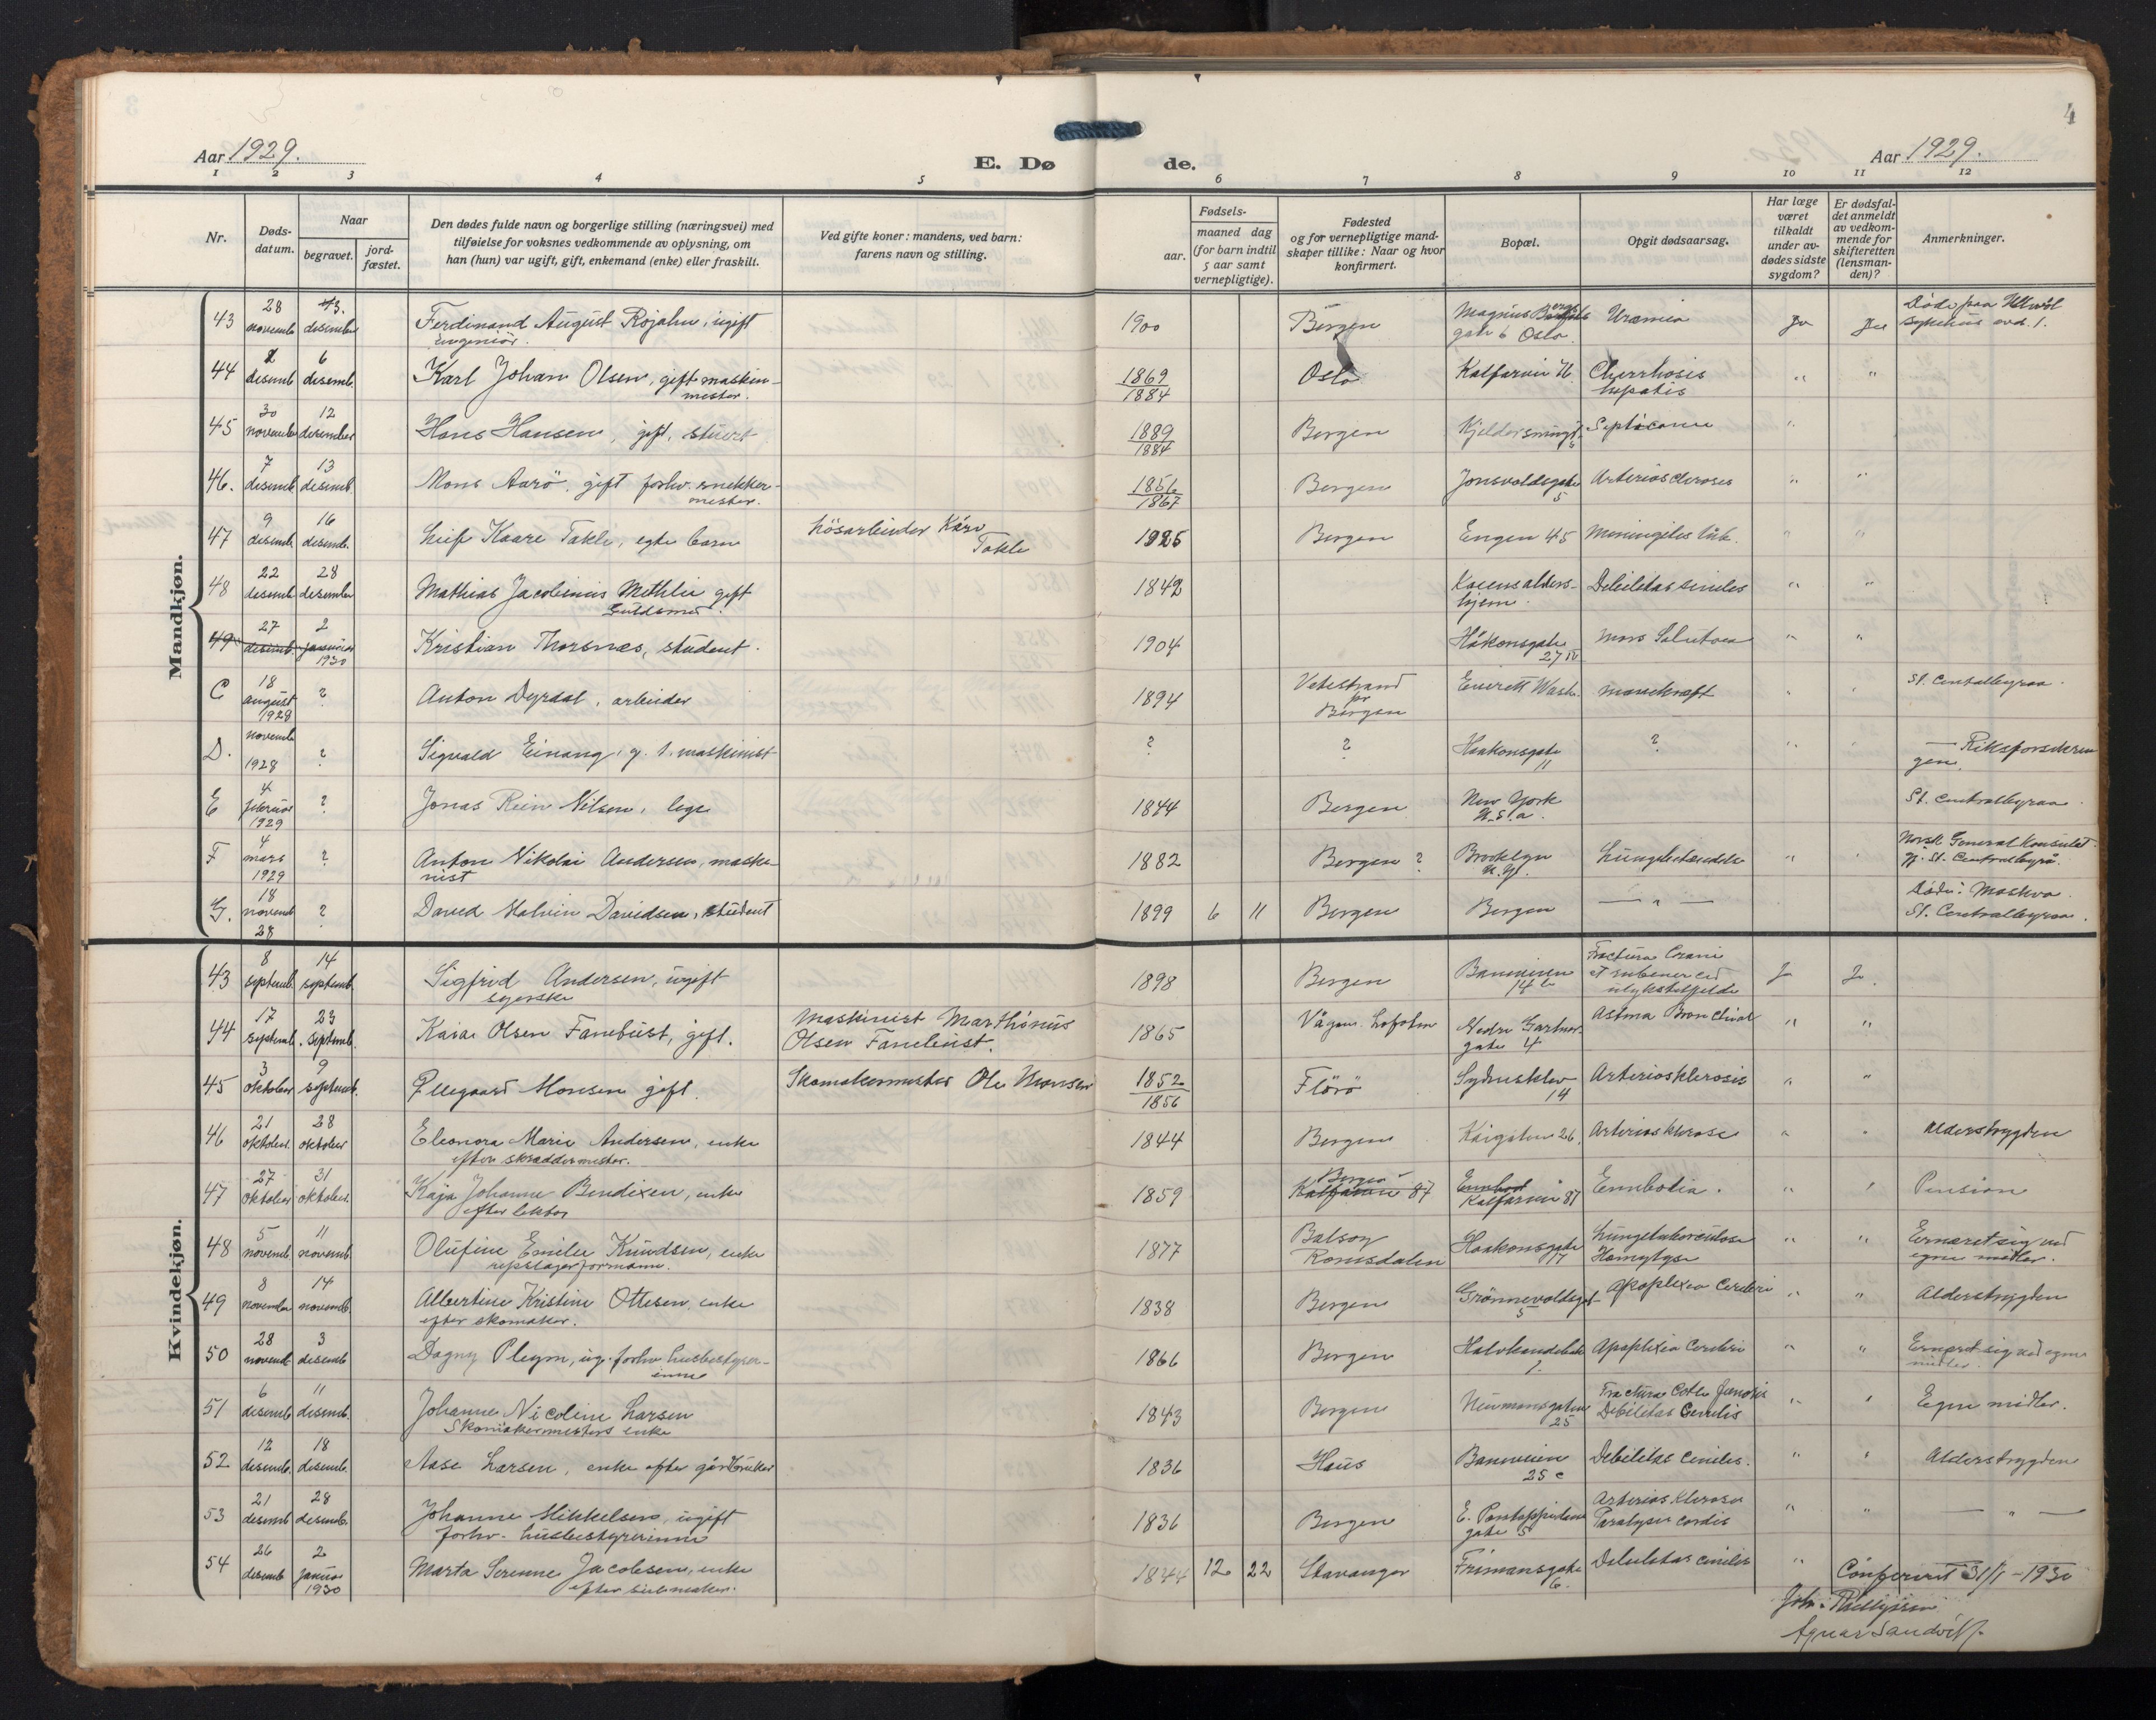 4
Aar 1929.
E. Dø de.
Aar 1929.
1 2 3 4 5 6 7 8 9 10 11 12
Nr.
Døds-
datum.
Naar
begravet.
jord-
fæstet.
Den dødes fulde navn og borgerlige stilling (næringsvei) med
tilføielse for voksnes vedkommende av oplysning, om
han (hun) var ugift, gift, enkemand (enke) eller fraskilt.
Ved gifte koner: mandens, ved barn:
farens navn og stilling.
Fødsels-
aar.
maaned dag
(for barn indtil
5 aar samt
vernepligtige).
Fødested
og for vernepligtige mand-
skaper tillike: Naar og hvor
konfirmert.
Bopæl.
Opgit dødsaarsag.
Har læge
været
tilkaldt
under av-
dødes sidste
sygdom?
Er dødsfal-
det anmeldt
av vedkom-
mende for
skifteretten
(lensman-
den)?
Anmerkninger.
Mandkjøn.
43 28 novemb. 3. desember Ferdinand August Rojahn, ugift 1900 Bergen Magnus
ingeniør. gate 6 Oslo. Uremia Ja Ja Døde paa Ullevål
sykehus avd. 1.
44 desemb. 6 desemb. Karl Johan Olsen, gift maskin- 1869 Oslo Kalfarvei
mester. 1884 hepatis " "
45 30 november 12 desember Hans Hansen, gift, stuert 1889 Bergen "
1884
46. 7 desemb. 13 desemb. Mons Aarö, gift forhv. snekker- 1856 Bergen Jonsvoldsgate Arteriosclerosis " "
mester. 1867 5
47 9 desemb. 16 desemb. Leif Kaare Takle, egte barn lösarbeider Kåre 1925 Bergen Engen 45 " "
Takle
48 22 desemb. 28 desember Mathias Jacobinus Methlie gift 1842 alders- Debilitas seniles " "
Guldsmed. hjem.
49 27 desemb. 2 januar Kristian Thorsnæs, student. 1904 Håkonsgate Mors " "
1930 27 IV
C 18 august ? Anton Dyrdal, arbeider 1894 Vetestrand Everett Wash. St. Centralbyraa.
1928 Bergen
D. novemb. ? Sigvald Einang, g. 1. maskinist ? ? Haakonsgate ?
1928 11
E 4 februar ? Jonas Rein Nilsen, lege 1844 Bergen New York St. Centralbyraa.
1929 U.S.A.
F 4 mars ? Anton Nikolai Andersen, maski- 1882 Bergen ? Brooklyn Lungebetændelse " Norsk General Konsulat
1929 nist N.Y. gj. St. Centralbyrå.
G. 18 novemb. ? David Malvin Davidsen, student 1899 6 11 Bergen Bergen — " — Döde i Moskva.
28 St. Centralbyraa.
Kvindekjøn.
43 8 septemb. 14 septemb. Sigfrid Andersen, ugift 1898 Bergen Banveien Fractura Crani Ja Ja
syerske 14 b
44 17 septemb. 23 septemb. Kaia Olsen Fanebust, gift. Maskinist Marthinus 1865 Vågan. Lofoten Nedre Astma Bronchial " "
Olsen Fanebust. gate 4
45 3 oktober 9 septemb. Ellegaard Monsen gift. Skomakermester Ole Monsen 1852 Florö Sydnesklev Arteriosklerosis " "
1856 14
46 21 oktober 28 oktober Eleonora Marie Andersen, enke 1844 Bergen 26. Arteriosklerose " " Alderstrygden
efter skræddermester.
47 27 oktober 31 oktober. Kaja Johanne Bendixen, enke 1859 Bergen Kalfarvei 87 Emboli " " Pension
efter lektor Kalfarvei 87
48 5 novemb. 11 novemb. Olufine Emilie Knudsen, enke 1877 Romsdalen Haakonsgate Lungetuberculose " " Ernæret sig ved
repslagerformann. 17 egne midler.
49 8 november 14 novemb. Albertine Kristine Ottesen, enke 1838 Bergen Grønnevoldsgt Apoplexia Cerebri " " Alderstrygden
efter skomaker. 5
50 28 novemb. 3 desemb. Dagny Pleym, ug. forhv. husbestyrer- 1866 Bergen Apoplexia Cerebri " " Ernært sig ved egne
inne midler.
51 6 desemb. 11 desemb. Johanne Nicoline Larsen 1843 Bergen Neumansgaten Fractura Colli femoris " " Egne midler.
Skomakermesters enke 25 Debilitas Senilis
52 12 desemb. 18 desemb. Aase Larsen, enke efter gårdbruker 1836 Haus Banveien Debilitas seniles. " " Alderstrygden
25 c
53 21 desemb. 28 desemb. Johanne Mikkelsen, ugift 1836 Bergen E. Pontoppidans Arteriosklerose " " — " —
forhv. husbestyrerinne gate 5 Paralysis cordis
54 26 desemb. 2 januar Marta Serine Jacobsen, enke 1844 12 22 Stavanger Frimansgate Debilitas seniles "
1930 efter 6.
Conferert 31/1 - 1930